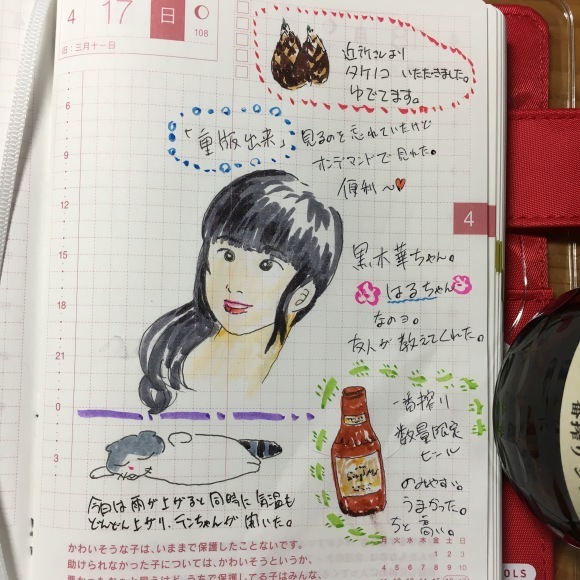 4 17 日
108
旧:三月十一日
近所コレより
タケノコ いただきました。
ゆでてます。
「重版出来」
見るのを忘れていたけど
オンデマンドで見れた。
便利〜
6
9
12
15
18
21
0
3
4
黒木華ちゃん。
はるちゃん
なのヨ。
友人が教えてくれた。
一番搾り
数量限定
ビール
のみやすい。
うまかった。
ちと高い。
今日は雨が上がると同時に気温も
どんどん上がり、ランちゃんが開いた。
かわいそうな子は、いままで保護したことないです。
助けられなかった子については、かわいそうというか、
月 火 水 木 金 土 日
1 2 3
OLS